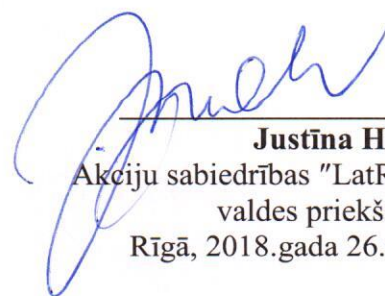 Justīna H
Akciju sabiedrības "LatR
valdes priekš
Rīgā, 2018.gada 26.